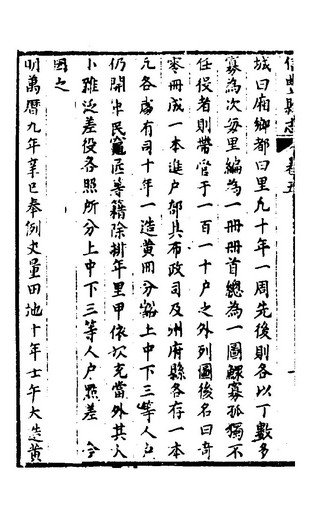 城曰廂鄉都曰里凡十年一周先後則各以丁數多
寡為次每里編為一冊冊首總為一圖鰥寡孤獨不
任役者則帶管于一百一十戶之外列圖後名曰奇
零冊成一本進戶部其布政司及州府縣各存一本
凡各處有司十年一造黃冊分豁上中下三等人戶
仍開軍民竈匠等籍除排年里甲依次充當外其大
小雜泛差役各照所分上中下三等人戶點差 今
因之
明萬曆九年辛巳奉例丈量田池十年壬午大造黃